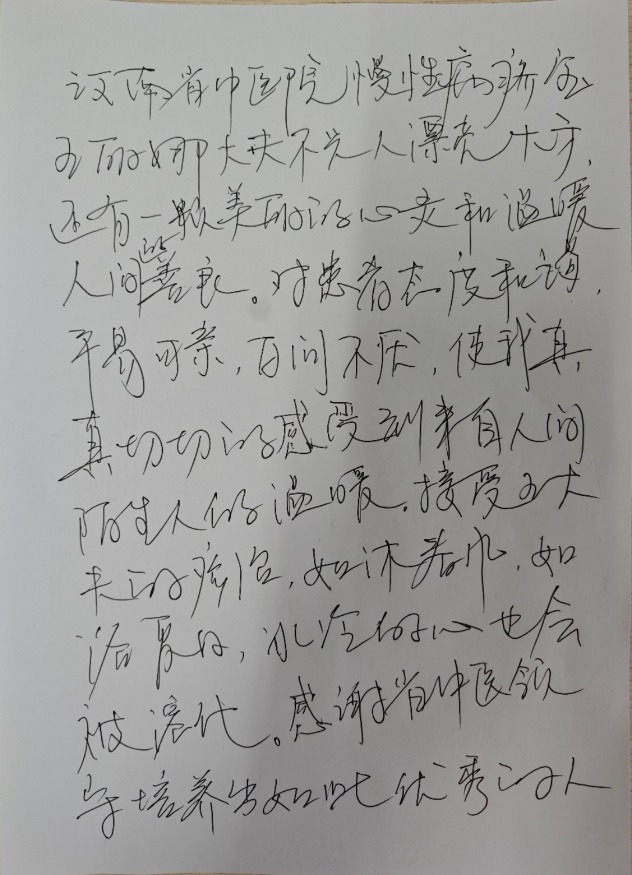 河南省中医院慢性病疗室
王丽娜大夫不光人漂亮大方，
还有一颗美丽的心灵和温暖
人间的善良。对患者态度和谐，
平易可亲，百问不厌，使我真
真切切的感受到来自人间
陌生人的温暖。接受王大
夫的疗治，如沐春风，如
浴夏日，冰冷的心也会
被溶化。感谢省中医领
导培养出如此优秀的人